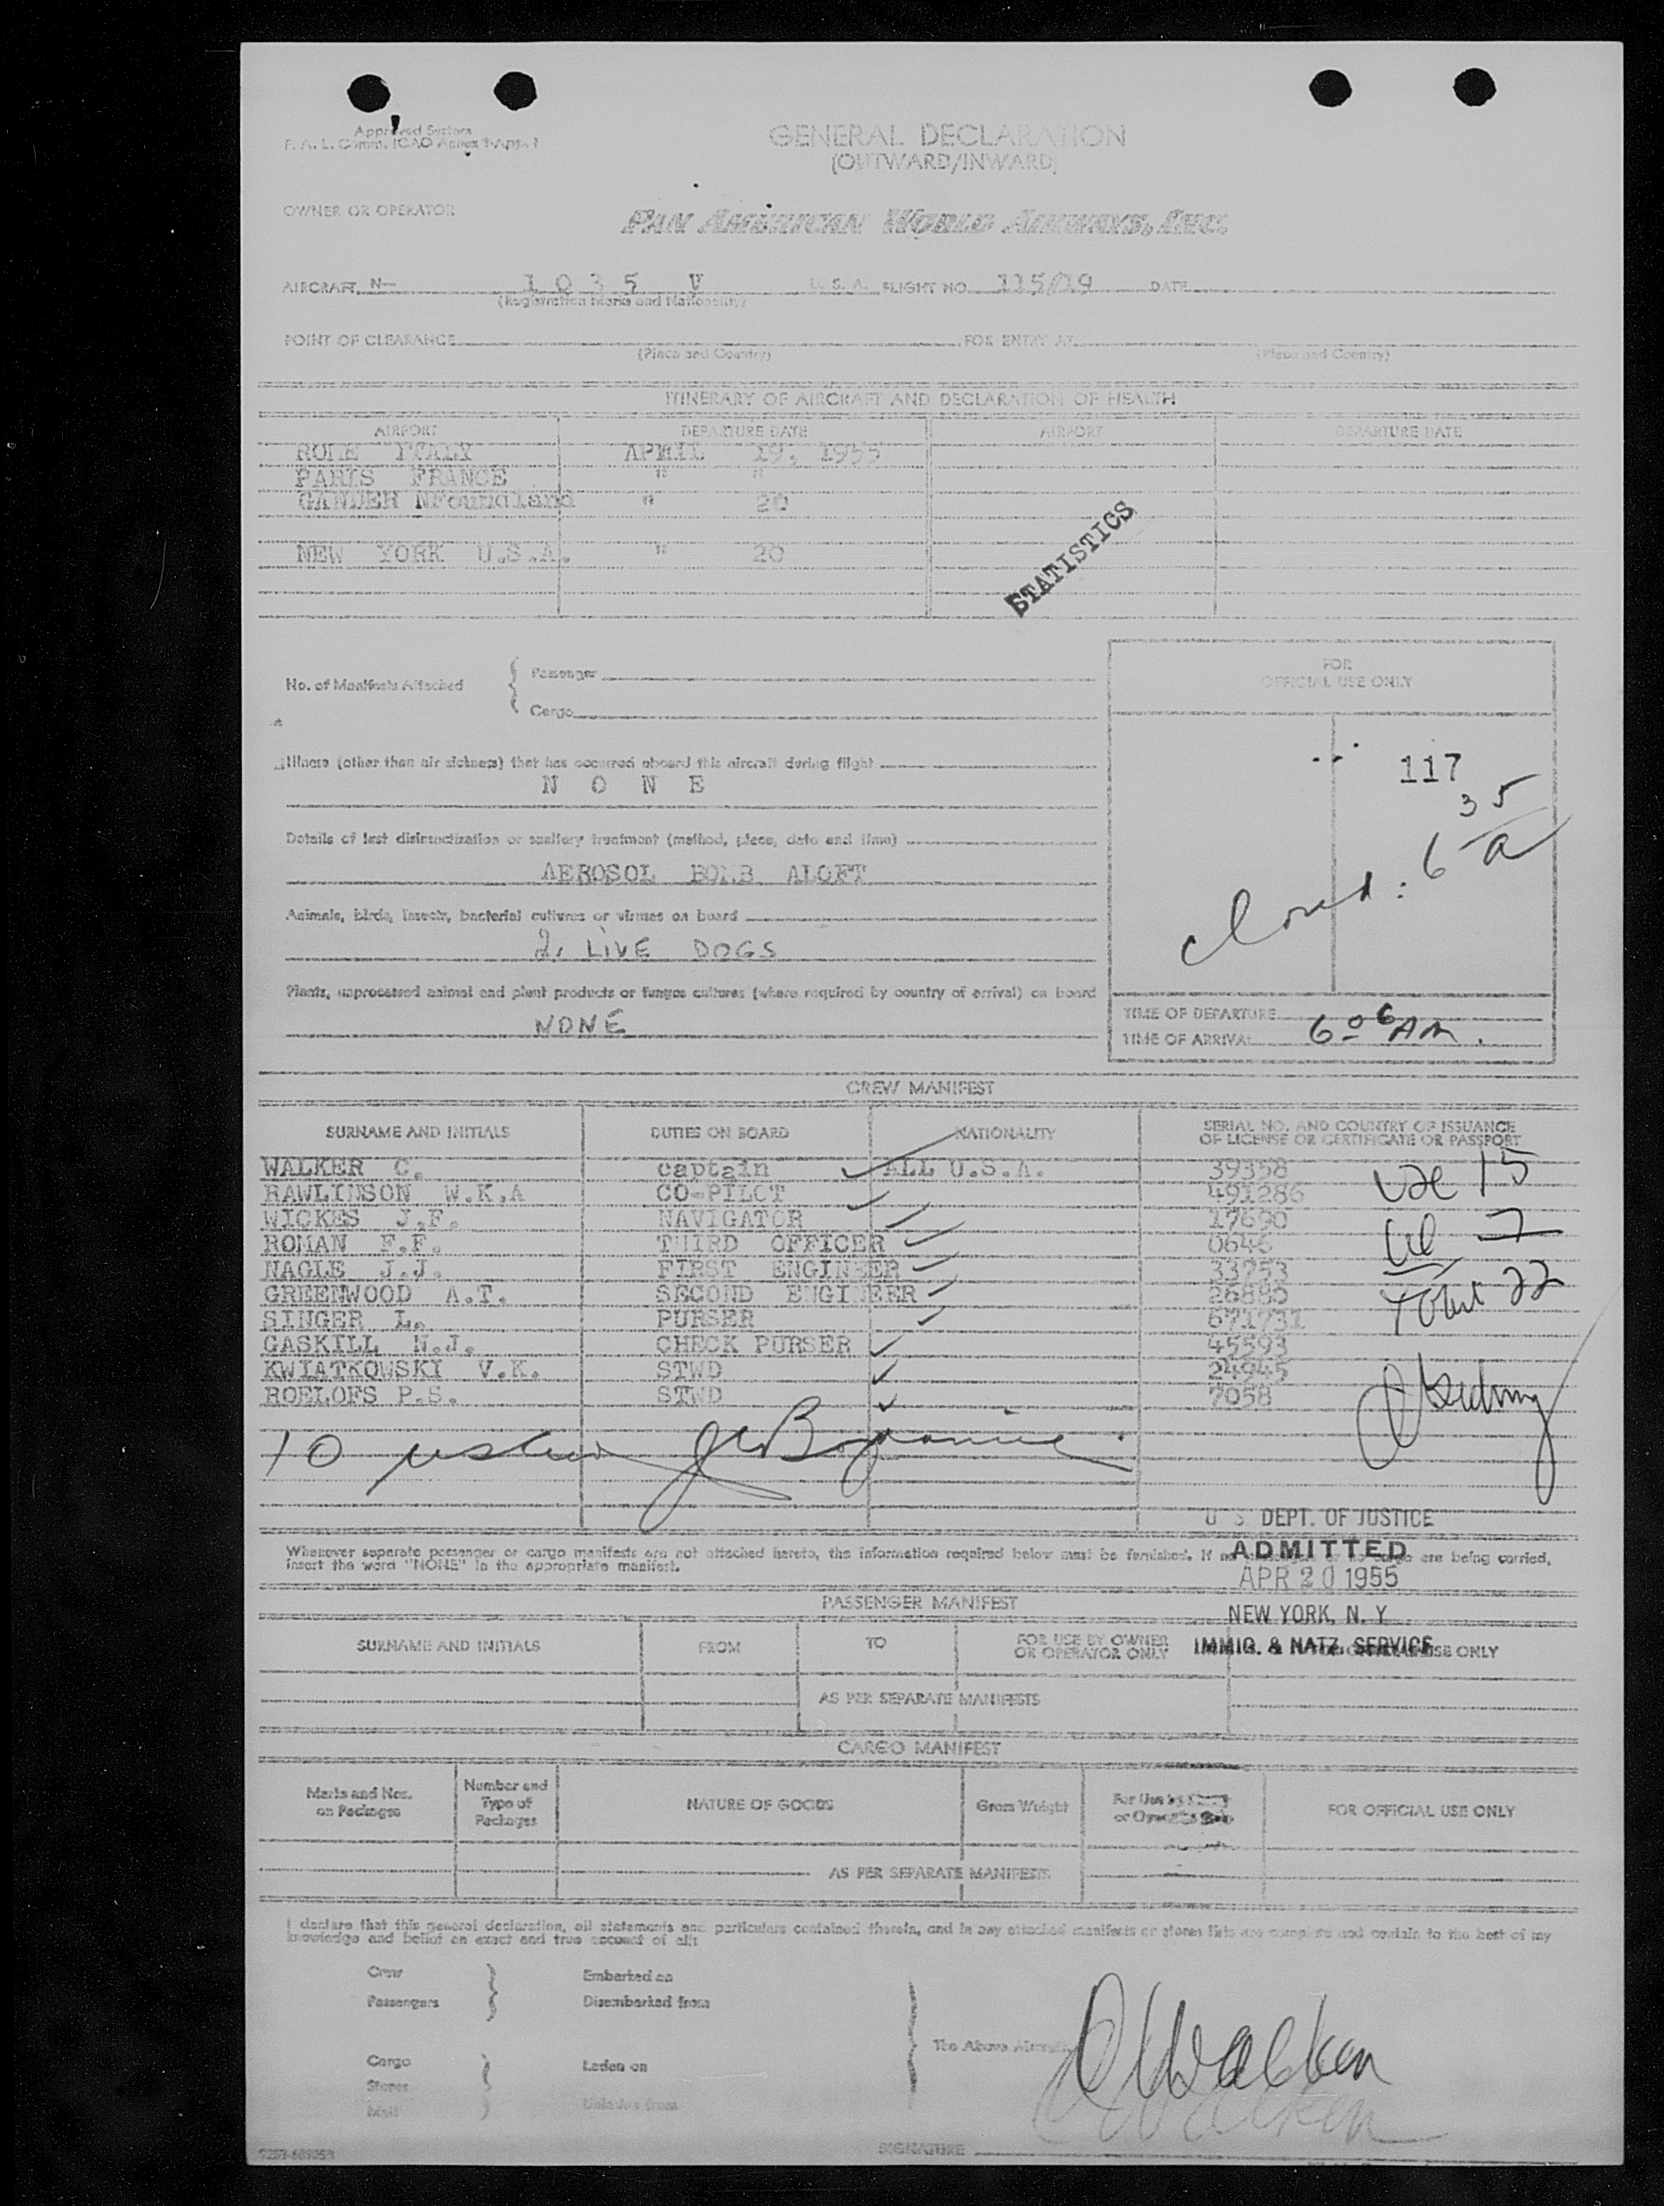 Approved System
F. A. L. Comm. ICAO Annex 9-App. 1
GENERAL DECLARATION
(OUTWARD/INWARD)
OWNER OR OPERATOR
PAN AMERICAN WORLD AIRWAYS, INC.
AIRCRAFT N— 1035 V U. S. A. FLIGHT NO. 115/19 DATE
(Registration Marks and Nationality)
POINT OF CLEARANCE FOR ENTRY AT
(Place and Country) (Place and Country)
ITINERARY OF AIRCRAFT AND DECLARATION OF HEALTH
AIRPORT DEPARTURE DATE AIRPORT DEPARTURE DATE
ROME ITALY APRIL 19, 1955
PARIS FRANCE " "
GANDER NFoundland " 20
NEW YORK U.S.A. " 20
STATISTICS
No. of Manifests Attached
Passenger
Cargo
FOR
OFFICIAL USE ONLY
Illness (other than air sickness) that has occurred aboard this aircraft during flight
N O N E
117
Details of last disinsectization or sanitary treatment (method, place, date and time)
AEROSOL BOMB ALOFT
6 35 a
Animals, birds, insects, bacterial cultures or viruses on board
2, LIVE DOGS
Plants, unprocessed animal and plant products or fungus cultures (where required by country of arrival) on board
NONE
TIME OF DEPARTURE
TIME OF ARRIVAL 6 06 AM.
CREW MANIFEST
SURNAME AND INITIALS DUTIES ON BOARD NATIONALITY SERIAL NO. AND COUNTRY OF ISSUANCE OF LICENSE OR CERTIFICATE OR PASSPORT
WALKER C. captain ALL U.S.A. 39358
RAWLINSON W.K.A CO-PILOT 491286
WICKES J.F. NAVIGATOR 17690
ROMAN F.F. THIRD OFFICER 0646
NAGLE J.J. FIRST ENGINEER 33253
GREENWOOD A.T. SECOND ENGINEER 26880
SINGER L. PURSER 671731
GASKILL N.J. CHECK PURSER 45593
KWIATKOWSKI V.K. STWD 24945
ROELOFS P.S. STWD 7058
15
7
Total 22
10
U. S. DEPT. OF JUSTICE
ADMITTED
APR 20 1955
NEW YORK, N. Y.
IMMIG. & NATZ. SERVICE
Whenever separate passenger or cargo manifests are not attached hereto, the information required below must be furnished. If no are being carried,
insert the word "NONE" in the appropriate manifest.
PASSENGER MANIFEST
SURNAME AND INITIALS FROM TO FOR USE BY OWNER OR OPERATOR ONLY USE ONLY
AS PER SEPARATE MANIFESTS
CARGO MANIFEST
Marks and Nos. on Packages Number and Type of Packages NATURE OF GOODS Gross Weight For Use by Owner or Operator Only FOR OFFICIAL USE ONLY
AS PER SEPARATE MANIFESTS
I declare that this general declaration, all statements and particulars contained therein, and in any attached manifests or stores lists are complete and contain to the best of my
knowledge and belief an exact and true account of all:
Crew Embarked on
Passengers Disembarked from
The Above Aircraft
Cargo Laden on
Stores
Mail Unladen from
C Walker
SIGNATURE